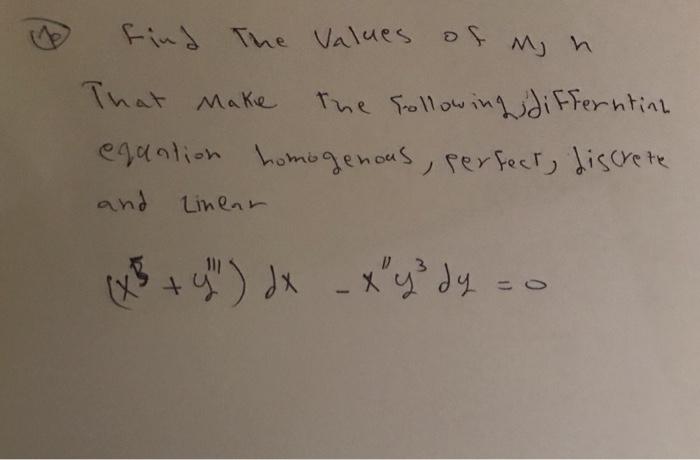 Find The Values of m, n
That Make the Following differntial
equation homogenous, perfect, discrete
and Linear
(x⁵ + y''') dx - x''y³ dy = 0